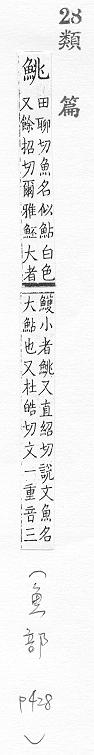 28類 篇
鮡
田聊切魚名似鮎白色
又餘招切爾雅鮤大者
鱯小者鮡又直紹切說文魚名
大鮎也又杜皓切文一重音三
(魚部 p428)